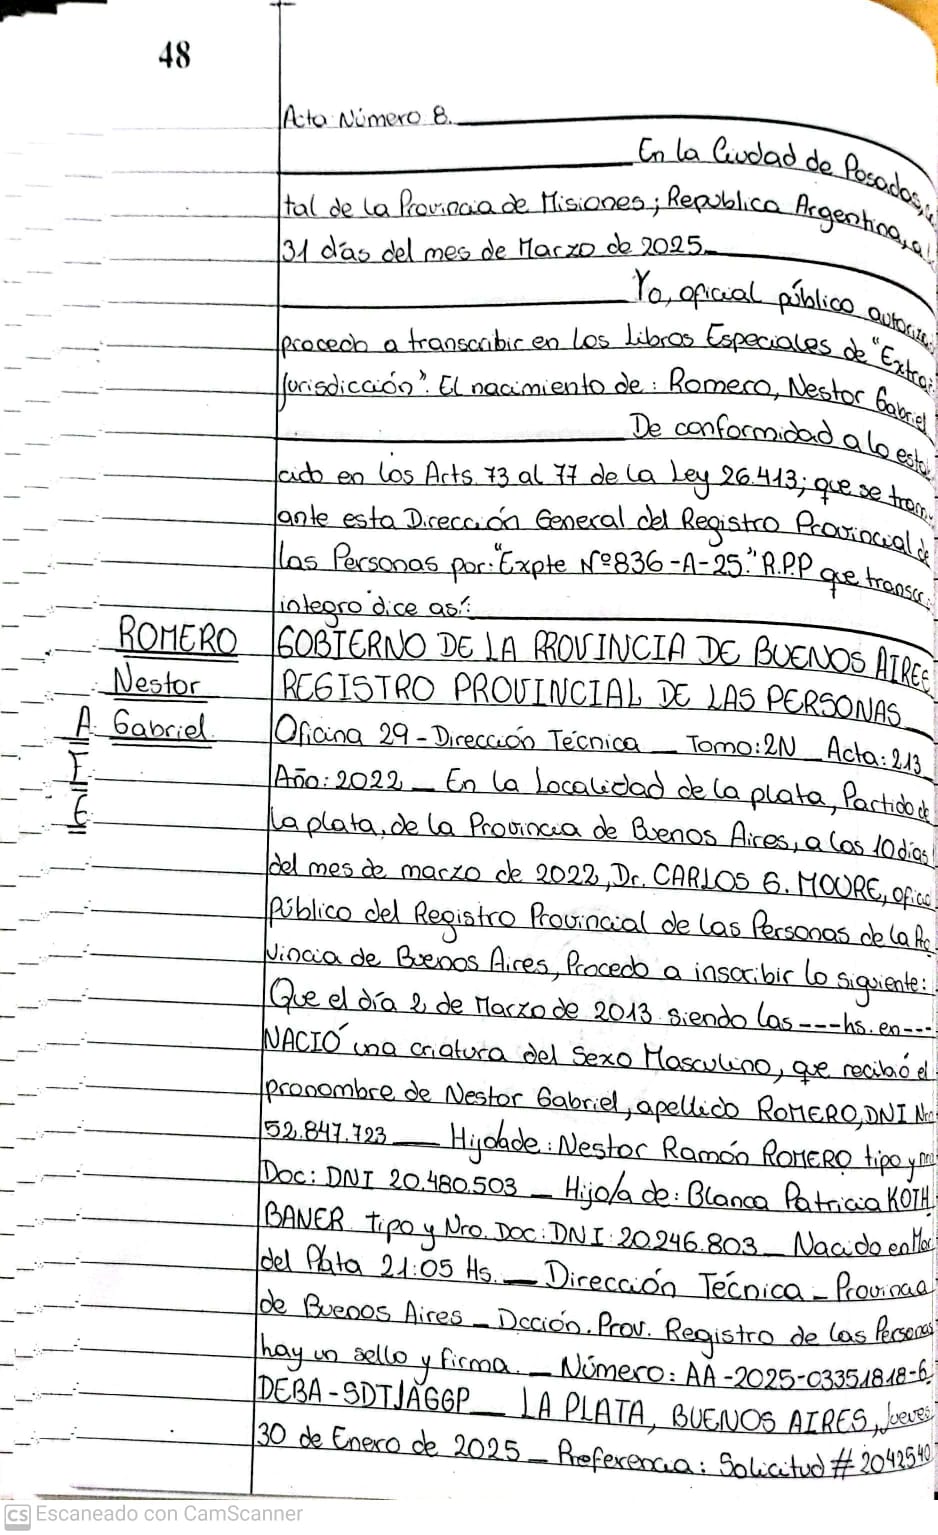 48
Acta Número 8.
En la Ciudad de Posadas,
tal de la Provincia de Misiones; Republica Argentina, a
31 días del mes de Marzo de 2025.
Yo, oficial público autoriza
procedo a transcribir en los Libros Especiales de "Extra
Jurisdicción". El nacimiento de: Romero, Nestor Gabriel
De conformidad a lo esta
cido en los Arts. 73 al 77 de la Ley 26.413; que se tram
ante esta Dirección General del Registro Provincial de
las Personas por: "Expte Nº 836-A-25." R.P.P que transc
integro dice así:
ROMERO
Nestor
A. Gabriel.
GOBIERNO DE LA PROVINCIA DE BUENOS AIRES
REGISTRO PROVINCIAL DE LAS PERSONAS
Oficina 29 - Dirección Técnica _ Tomo: 2N _ Acta: 213
Año: 2022 _ En la Localidad de la plata, Partido de
la plata, de la Provincia de Buenos Aires, a los 10 días
del mes de marzo de 2022, Dr. CARLOS G. MOURE, ofic
Público del Registro Provincial de las Personas de la Pro
vincia de Buenos Aires, Procedo a inscribir lo siguiente:
Que el día 2 de Marzo de 2013 siendo las ---hs. en ---
NACIÓ una criatura del Sexo Masculino, que recibió el
pronombre de Nestor Gabriel, apellido ROMERO, DNI Nro
52.847.723 _ Hijo/a de: Nestor Ramón ROMERO tipo y nro
Doc: DNI 20.480.503 _ Hijo/a de: Blanca Patricia KOTH
BANER tipo y Nro. Doc: DNI: 20.246.803 _ Nacido en Mar
del Plata 21:05 Hs. _ Dirección Técnica - Provincia
de Buenos Aires _ Dcción. Prov. Registro de las Personas
hay un sello y firma. _ Número: AA-2025-03351818-6
DEBA-SDTJAGGP _ LA PLATA, BUENOS AIRES, Jueves
30 de Enero de 2025 _ Referencia: Solicitud # 2042540
CS Escaneado con CamScanner